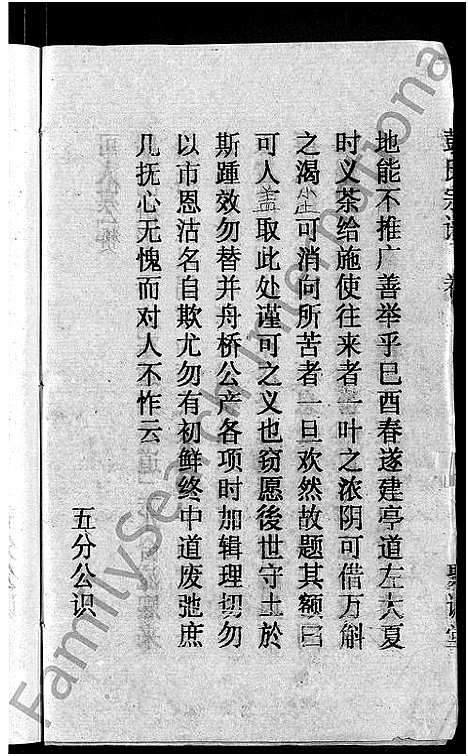 彭氏宗谱 卷
聚
堂
地能不推广善举乎巳酉春遂建亭道左大夏
时义茶给施使往来者一叶之浓阴可借万斛
之渴尘可消向所苦者一旦欢然故题其额曰
可人盖取此处谨可之义也窃愿後世守土於
斯踵效勿替并舟桥公产各项时加辑理切勿
以市恩沽名自欺尤勿有初鲜终中道废弛庶
几抚心无愧而对人不怍云
五分公识
FamilySearch International